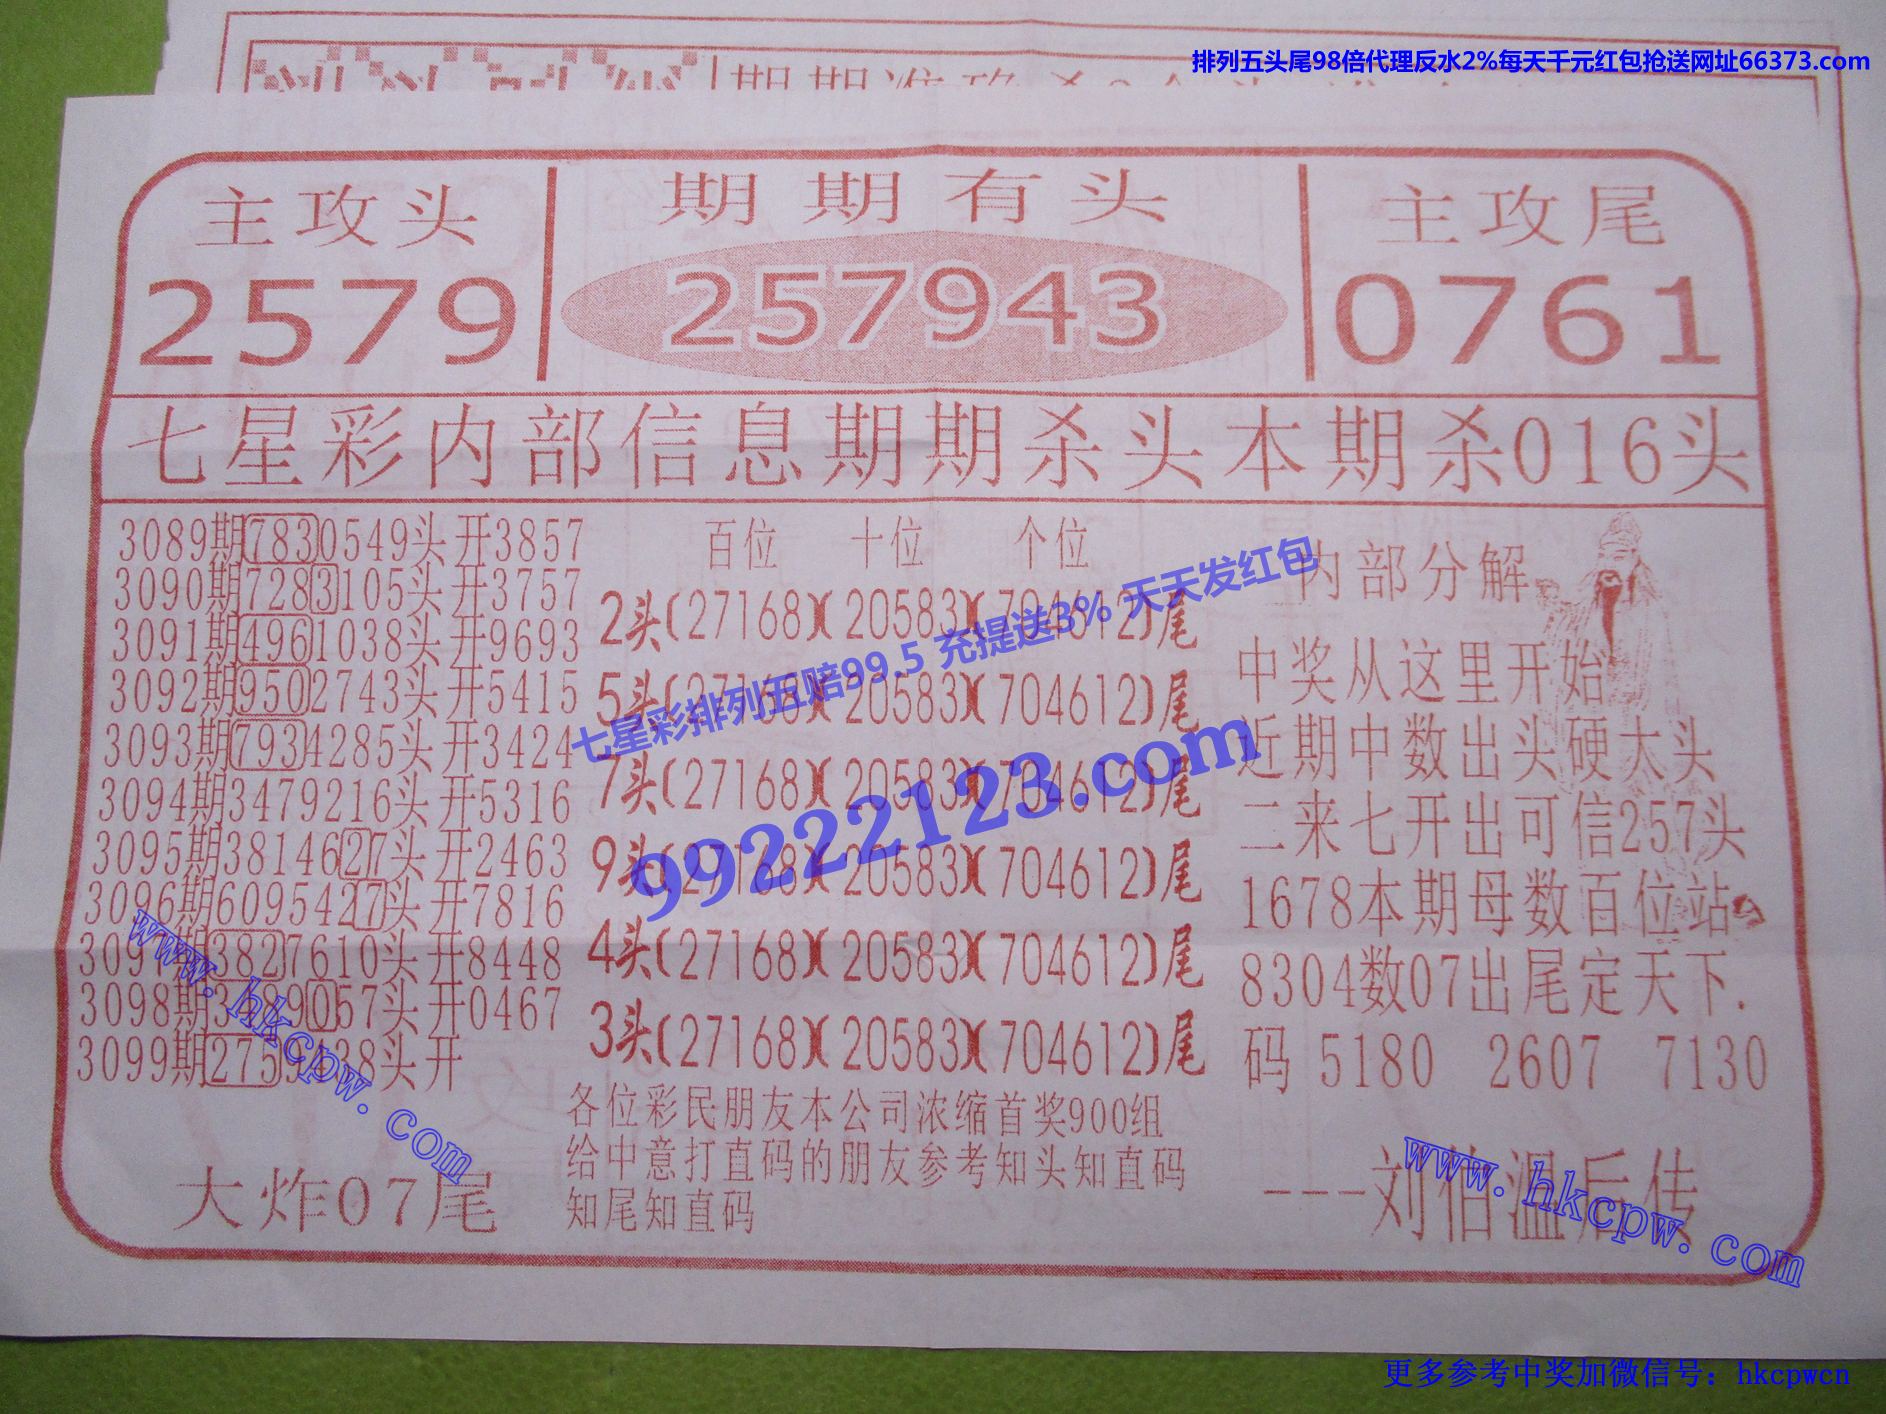 排列五头尾98倍代理反水2%每天千元红包抢送网址66373.com
主攻头
2579
期期有头
257943
主攻尾
0761
七星彩内部信息期期杀头本期杀016头
3089期7830549头开3857
3090期7283105头开3757
3091期4961038头开9693
3092期9502743头开5415
3093期7934285头开3424
3094期3479216头开5316
3095期3814627头开2463
3096期6095427头开7816
3097期3827610头开8448
3098期3489057头开0467
3099期2759138头开
大炸07尾
百位 十位 个位
2头(27168)(20583)(704612)尾
5头(27168)(20583)(704612)尾
7头(27168)(20583)(704612)尾
9头(27168)(20583)(704612)尾
4头(27168)(20583)(704612)尾
3头(27168)(20583)(704612)尾
各位彩民朋友本公司浓缩首奖900组
给中意打直码的朋友参考知头知直码
知尾知直码
内部分解
中奖从这里开始
近期中数出头硬大头
二来七开出可信257头
1678本期母数百位站
8304数07出尾定天下.
码 5180 2607 7130
---刘伯温后传
七星彩排列五赔99.5 充提送3% 天天发红包
99222123.com
www.hkcpw.com
www.hkcpw.com
更多参考中奖加微信号：hkcpwcn